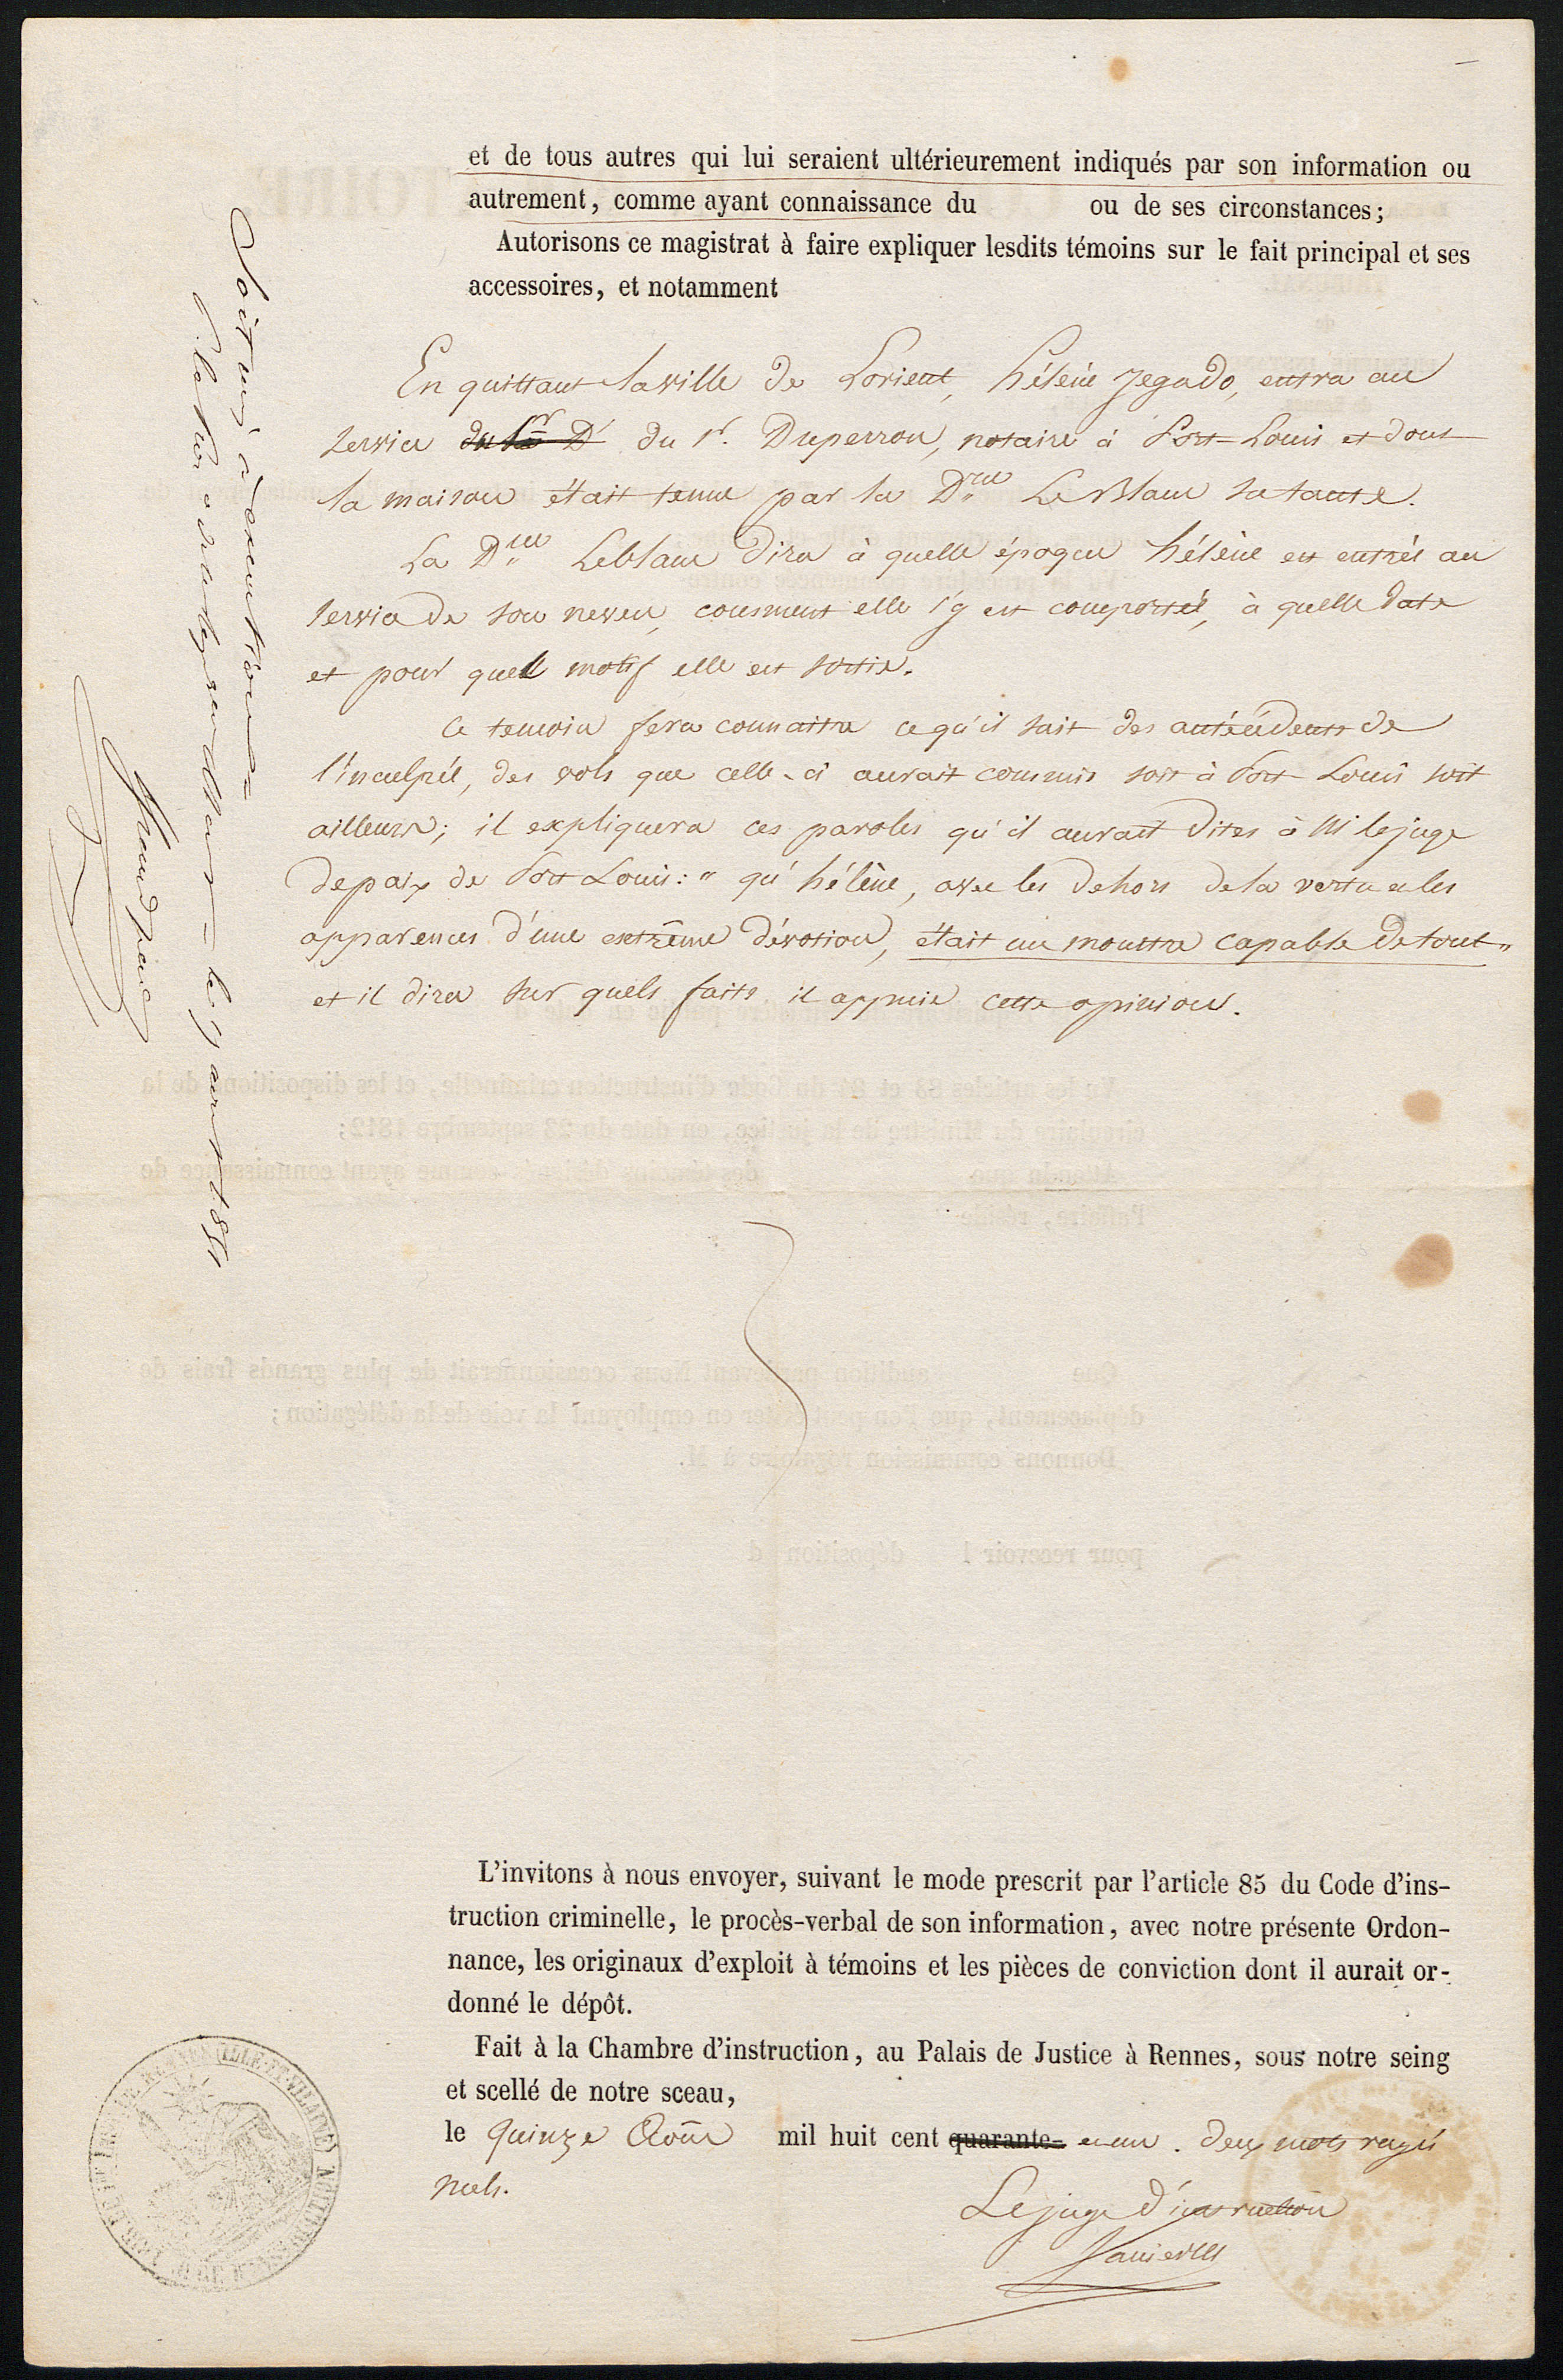 et de tous autres qui lui seraient ultérieurement indiqués par son information ou
autrement, comme ayant connaissance du ou de ses circonstances;
Autorisons ce magistrat à faire expliquer lesdits témoins sur le fait principal et ses
accessoires, et notamment
En quittant la ville de Lorient, hélène Jegado, entra au
service du Sr D du Sr. Duperron, notaire à Port-Louis et dont
la maison était tenue par la Dlle Le Blanc sa tante.
La Dlle Leblanc dira à quelle époque hélène est entrée au
service de son neveu, comment elle s'y est comportée, à quelle date
et pour quel motif elle est sortie.
Ce temoin fera connaitre ce qu'il sait des antécédents de
l'inculpée, des vols que celle-ci aurait commis soit à Port Louis soit
ailleurs; il expliquera ces paroles qu'il aurait dites à M le juge
de paix de Port Louis: " qu'hélène, avec les dehors de la vertu et les
apparences d'une extrême dévotion, était un monstre capable de tout "
et il dira sur quels faits il appuie cette opinion.
Soit mis à exécution
le août 1851
L'invitons à nous envoyer, suivant le mode prescrit par l'article 85 du Code d'ins-
truction criminelle, le procès-verbal de son information, avec notre présente Ordon-
nance, les originaux d'exploit à témoins et les pièces de conviction dont il aurait or-
donné le dépôt.
Fait à la Chambre d'instruction, au Palais de Justice à Rennes, sous notre seing
et scellé de notre sceau,
le quinze Août mil huit cent quarante- et un. deux mots rayés
nuls.
Le juge d'instruction